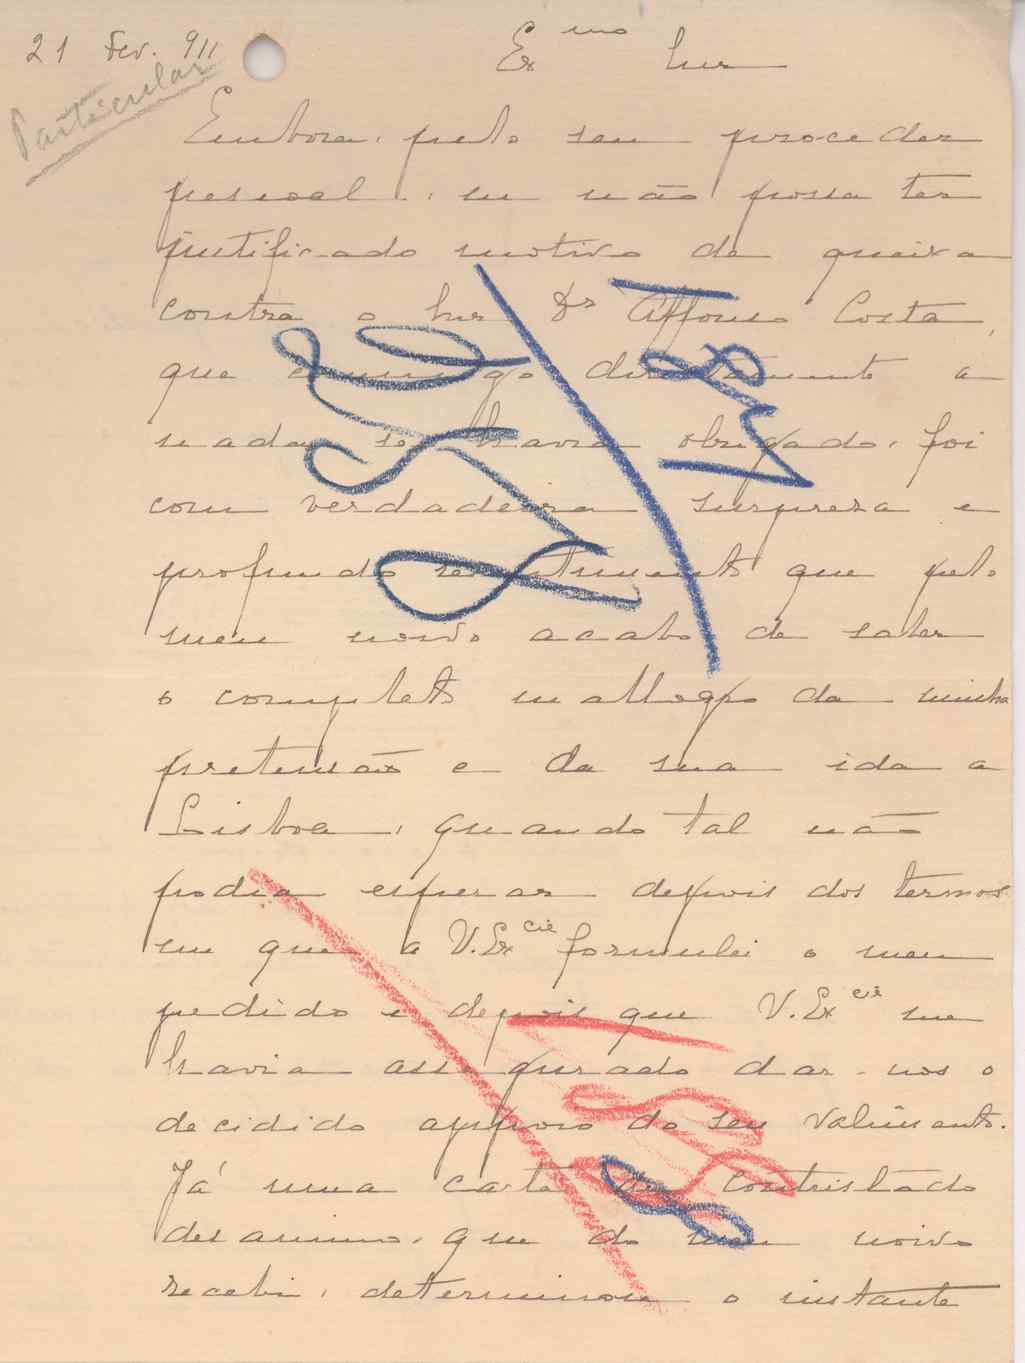 21 Fev. 911
Particular
Ex.mo Snr
Embora, pelo seu proceder
pessoal, eu não possa ter
justificado motivo de queixa
contra o Snr Dr Affonso Costa,
que commigo directamente a
nada se havia obrigado, foi
com verdadeira surpreza e
profundo resentimento que pelo
meu noivo acabo de saber
o completo mallogro da minha
pretensão e da sua ida a
Lisboa, quando tal não
podia esperar depois dos termos
em que a V. Excia formulei o meu
pedido e depois que V. Excia me
havia assegurado dar-nos o
decidido appoio do seu valimento.
Já uma carta de contristado
desanimo, que do meu noivo
recebi, determinou o instante